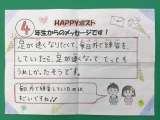 HAPPYポスト
4年生からのメッセージです！
足が速くなりたくて、毎日外で練習を
していたら、足が速くなって、とっても
うれしかったそうです。
毎日外で練習しているのは
すごいですね!!